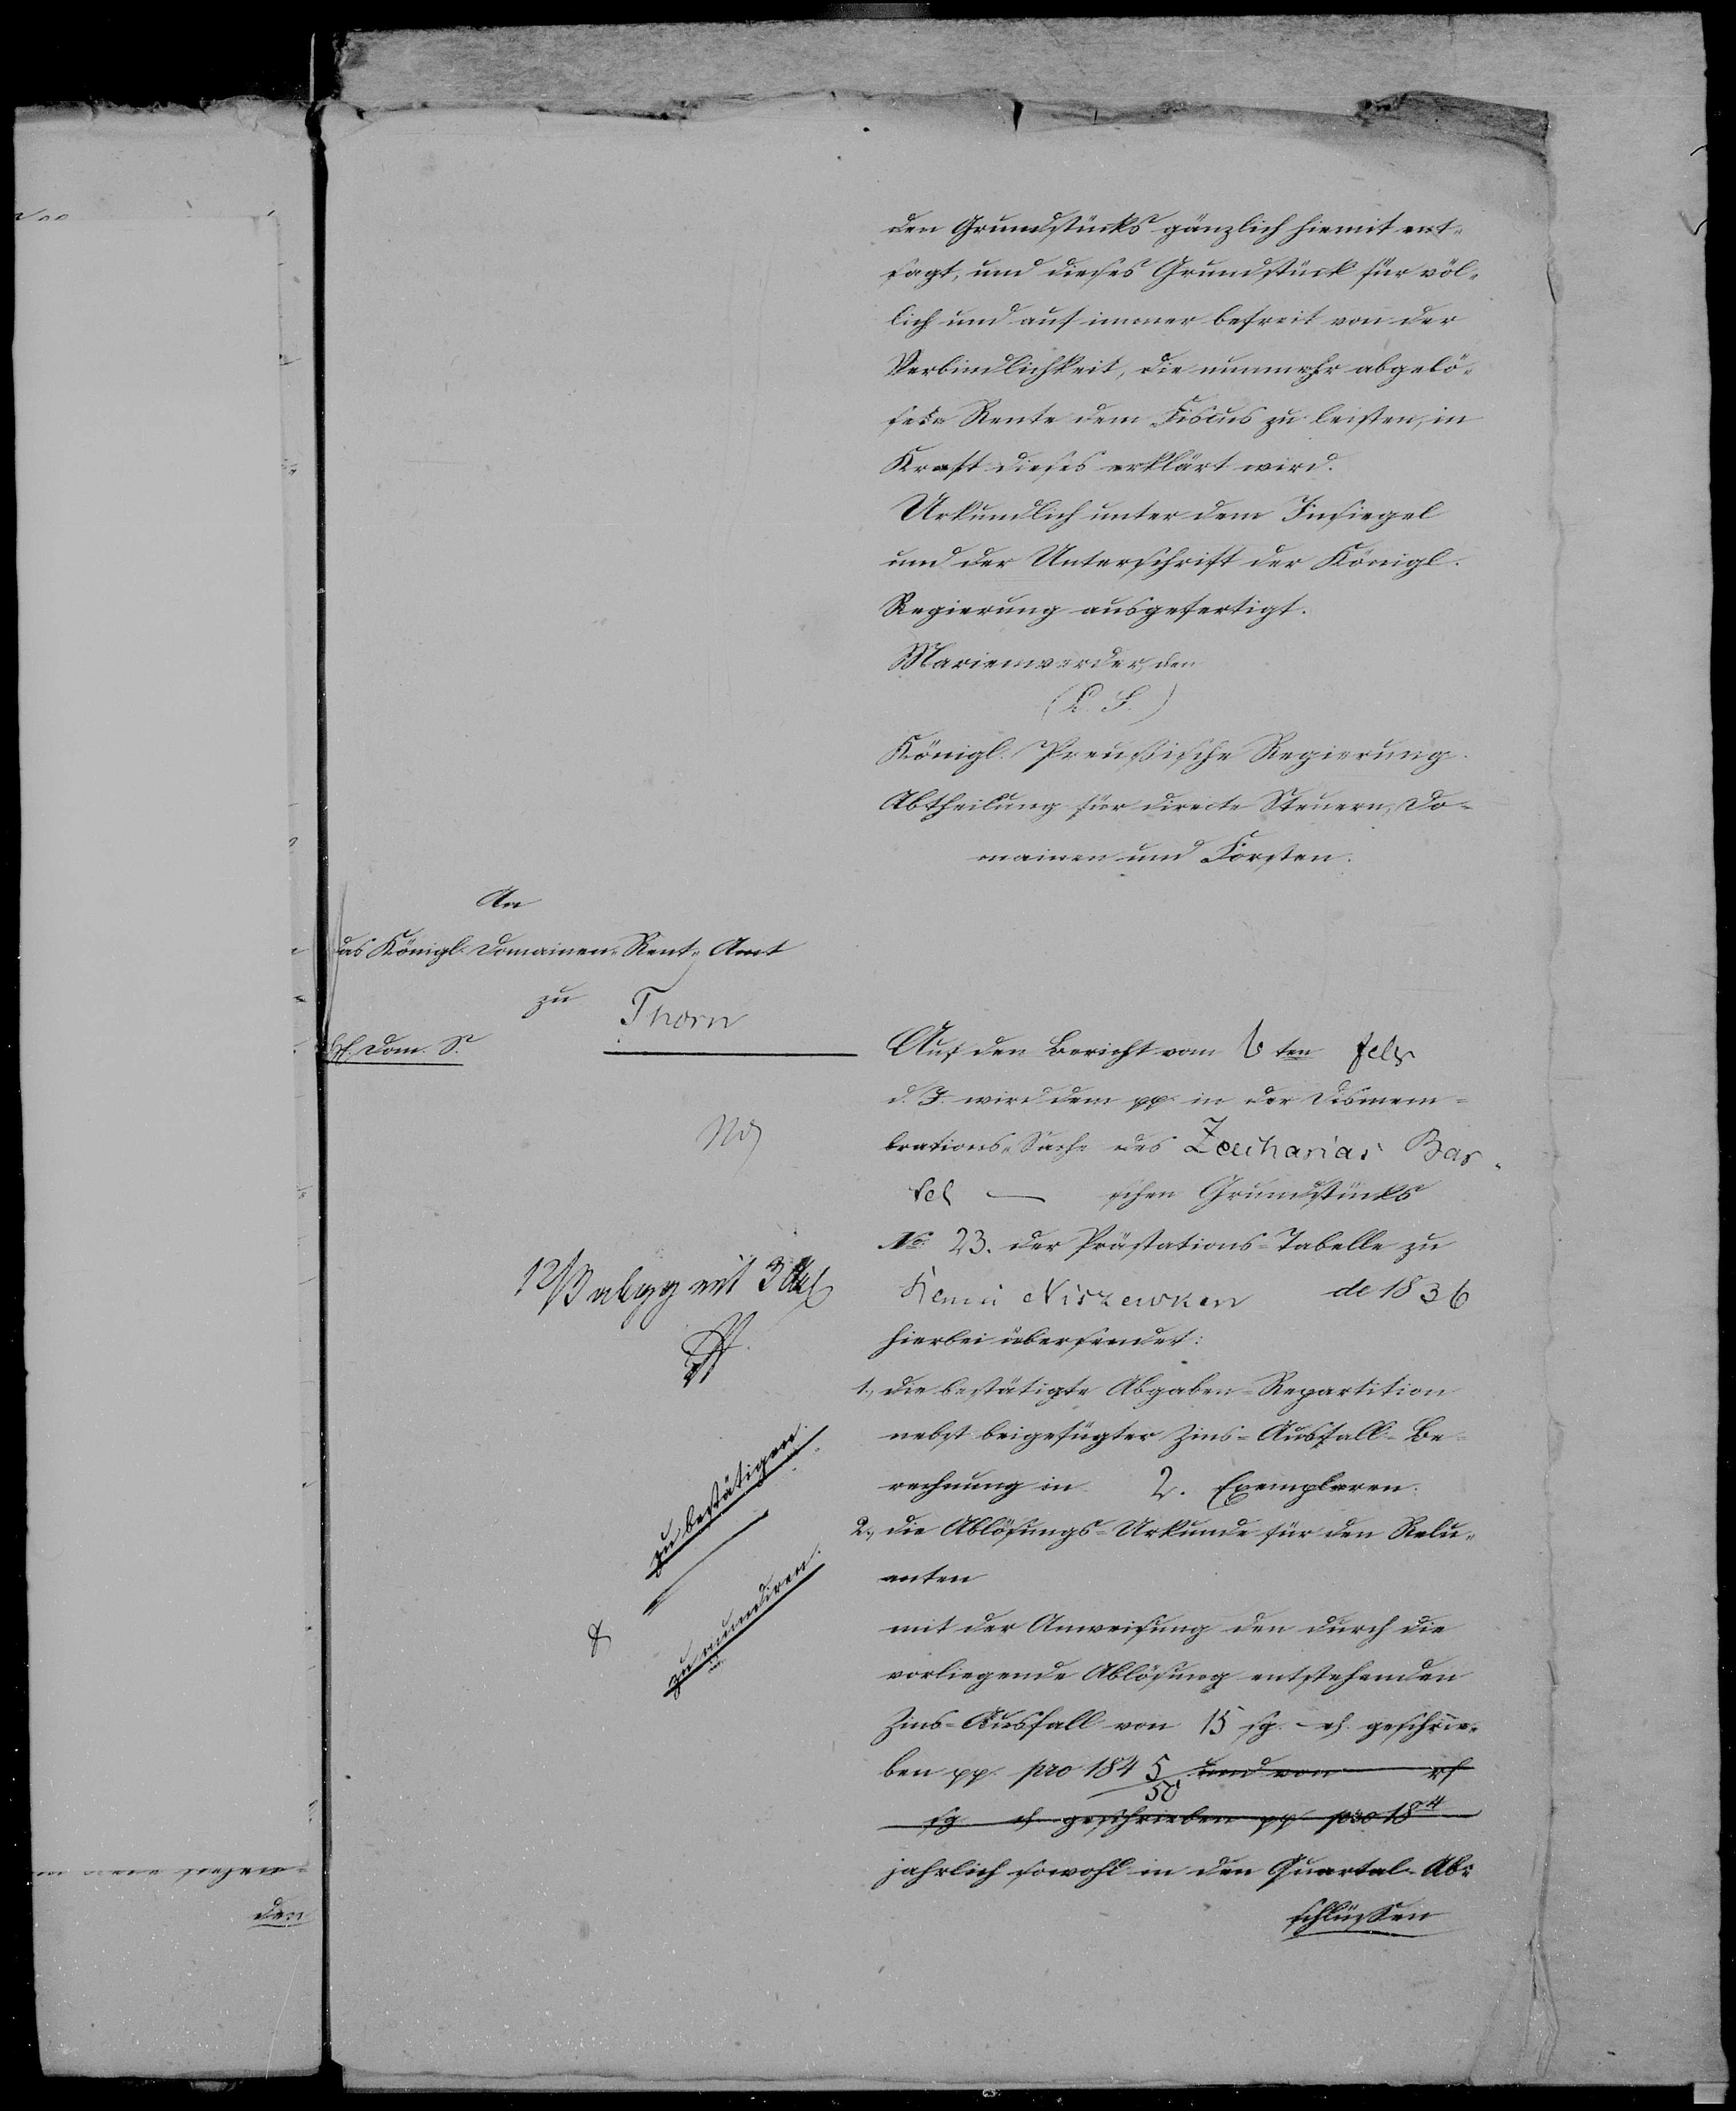 den Grundstücks gänzlich hiemit ent-
sagt, und dieses Grundstück für völ-
lich und auf immer befreit von der
Verbindlichkeit, die nunmehr abgelö-
sete Rente dem Fiscus zu leisten, in
Kraft dieses erklärt wird.
Urkundlich unter dem Insiegel
und der Unterschrift der Königl.
Regierung ausgefertigt.
Marienwerder, den
(L. S.)
Königl. Preußische Regierung.
Abtheilung für directe Steuern, Do-
mainen und Forsten.
An
das Königl. Domainen-Rent-Amt
zu Thorn
Dom. S.
Auf den Bericht vom 6 ten Febr
d. J. wird dem pp. in der Dismem-
brations-Sache des Zacharias Bar-
tel — schen Grundstücks
No. 23. der Prästations-Tabelle zu
Niszewken de 1836
hierbei übersendet:
1., die bestätigte Abgaben-Repartition
nebst beigefügter Zins-Ausfall-Be-
rechnung in 2. Exemplaren.
2., die Ablösungs-Urkunde für den Relu-
enten
mit der Anweisung den durch die
vorliegende Ablösung entstehenden
Zins-Ausfall von 15 sg. - pf. geschrie-
ben pp. pro 1845/50 und von rf
sg. pf geschrieben pp pro 184
jahrlich sowohl in den Quartal-Ab-
schlüssen
12/3 mit 3
zu bestätigen.
zu mundiren.
den